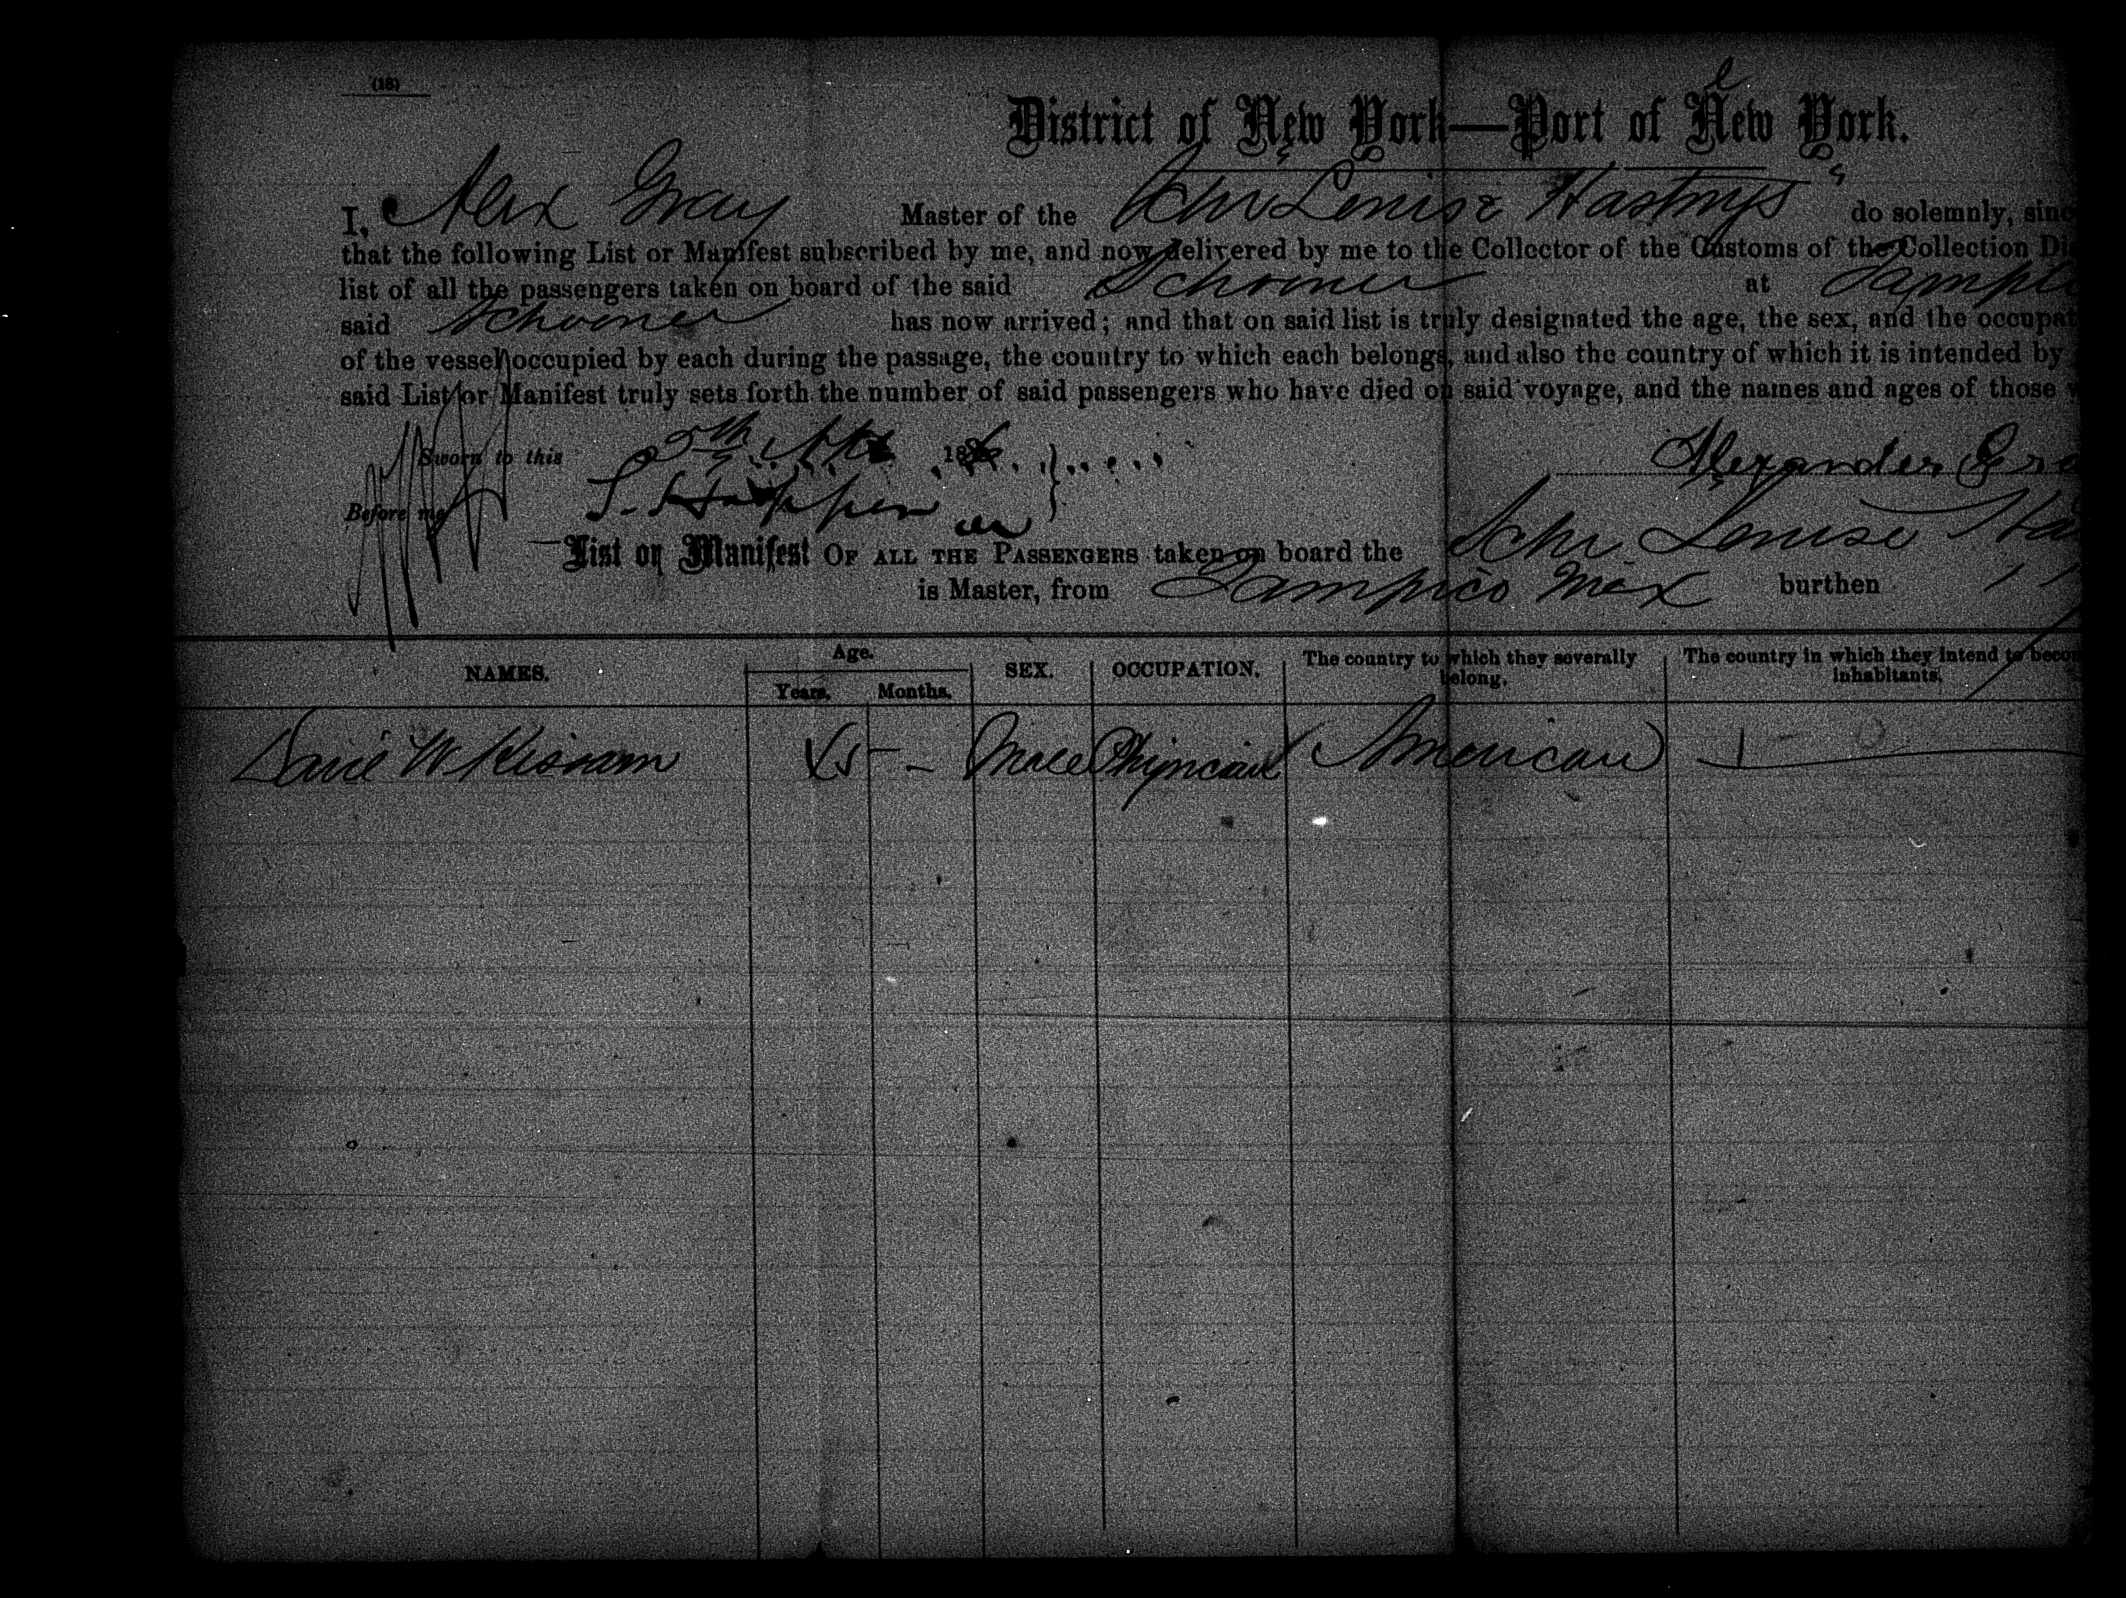 (18)
District of New York—Port of New York.
I, Alex Gray Master of the Schr Louise Hastings do solemnly, sinc
that the following List or Manifest subscribed by me, and now delivered by me to the Collector of the Customs of the Collection Di
list of all the passengers taken on board of the said Schooner at Tampic
said Schooner has now arrived; and that on said list is truly designated the age, the sex, and the occupat
of the vessel occupied by each during the passage, the country to which each belongs, and also the country of which it is intended by
said List or Manifest truly sets forth the number of said passengers who have died on said voyage, and the names and ages of those
Sworn to this 5th 18 Alexander Gra
Before me
List or Manifest OF ALL THE PASSENGERS taken on board the Schr Louise Has
is Master, from Tampico Mex burthen
NAMES. Age. Years. Months. SEX. OCCUPATION. The country to which they severally belong. The country in which they intend to becom inhabitants.
David W Kissam – Male Physician American